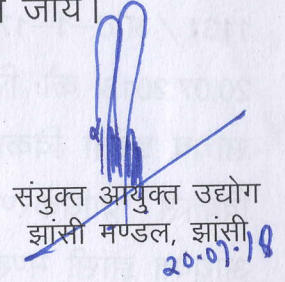 जाय।
संयुक्त आयुक्त उद्योग
झांसी मण्डल, झांसी
20.07.18